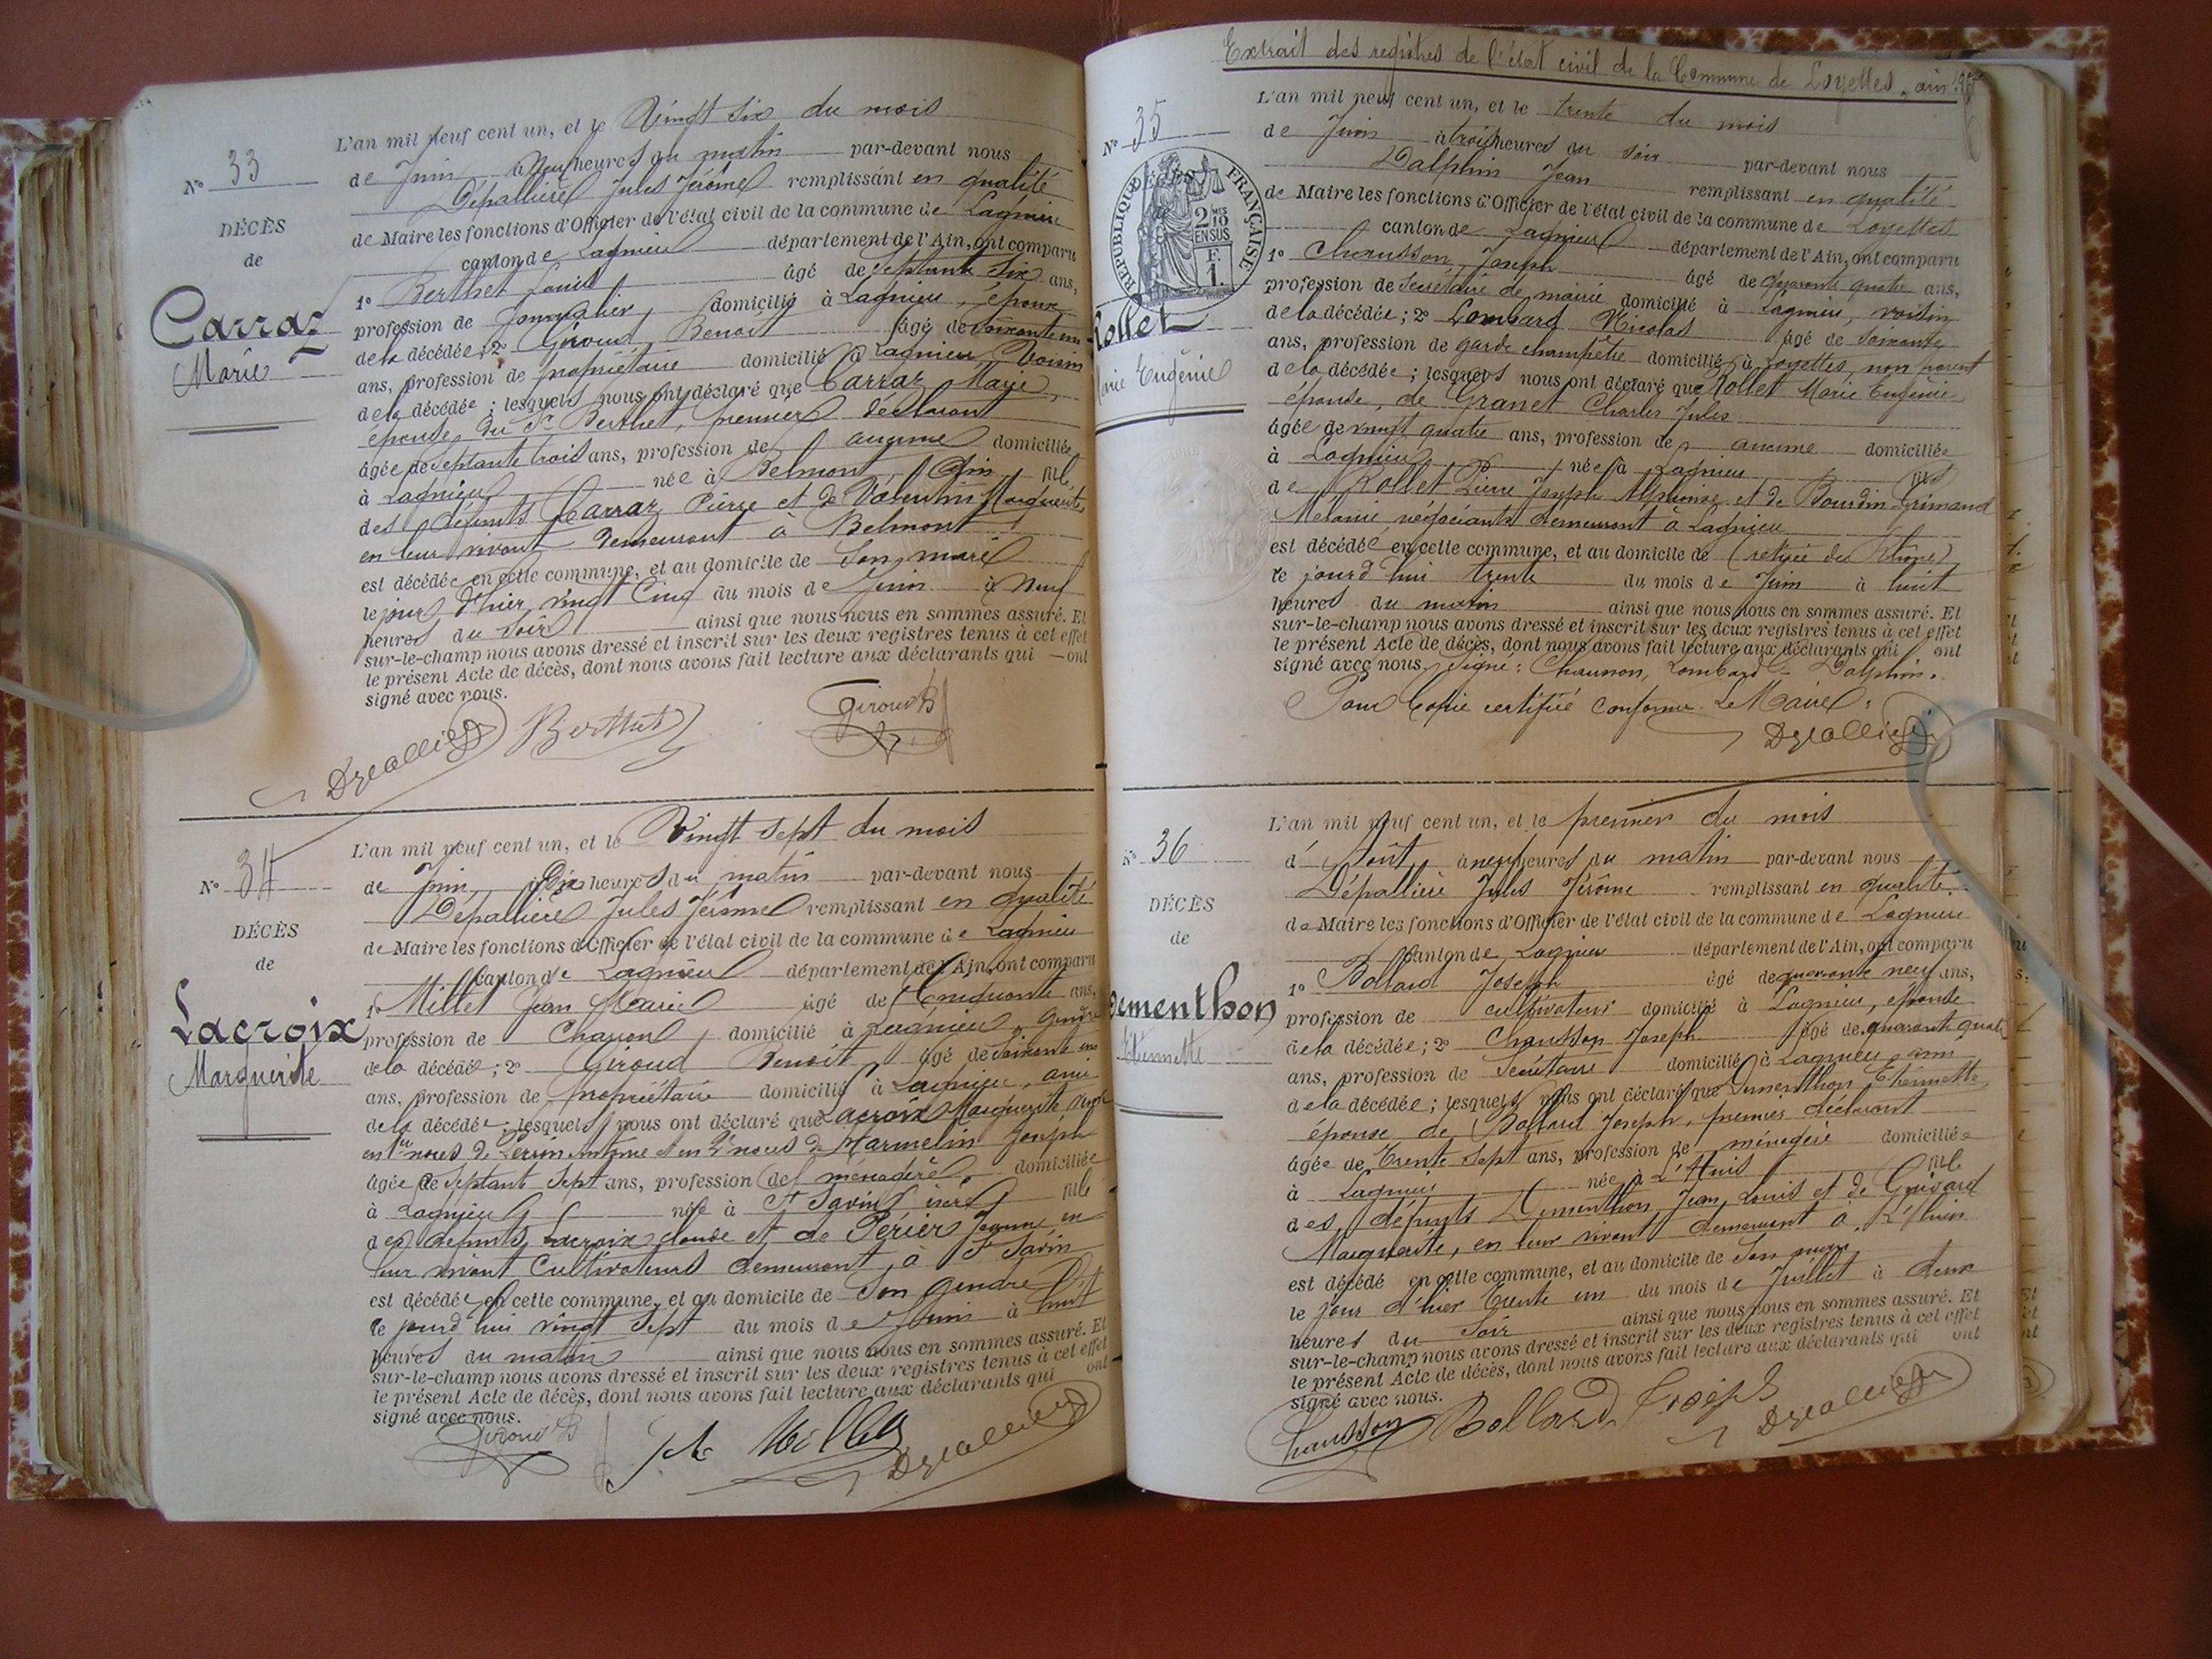 N° 33
DÉCÈS
de
Carraz
Marie
L'an mil neuf cent un, et le Vingt six du mois
de Juin à Neuf heures du matin par-devant nous
Dépallière Jules Jérôme remplissant en qualité
de Maire les fonctions d'Officier de l'état civil de la commune de Lagnieu
canton de Lagnieu département de l'Ain, ont comparu
1° Berthet Louis âgé de septante six ans,
profession de Journalier domicilié à Lagnieu, époux
de la décédée; 2° Giroud Benoit âgé de soixante un
ans, profession de propriétaire domicilié à Lagnieu Voisin
de la décédée; lesquels nous ont déclaré que Carraz Marie,
épouse du Sr Berthet, premier déclarant
âgée de septante trois ans, profession de aucune domiciliée
à Lagnieu née à Belmont, Ain fille
des défunts Carraz Pierre et de Valentin Marguerite
en leur vivant demeurant à Belmont
est décédée en cette commune, et au domicile de son mari
le jour d'hier vingt cinq du mois de Juin à Neuf
heures du soir ainsi que nous nous en sommes assuré. Et
sur-le-champ nous avons dressé et inscrit sur les deux registres tenus à cet effet
le présent Acte de décès, dont nous avons fait lecture aux déclarants qui ont
signé avec nous.
Berthet Giroud B
N° 34
DÉCÈS
de
Lacroix
Marguerite
L'an mil neuf cent un, et le Vingt sept du mois
de Juin à Dix heures du matin par-devant nous
Dépallière Jules Jérôme remplissant en qualité
de Maire les fonctions d'Officier de l'état civil de la commune de Lagnieu
canton de Lagnieu département de l'Ain, ont comparu
1° Millet Jean Marie âgé de Cinquante ans,
profession de Charron domicilié à Lagnieu, gendre
de la décédée; 2° Giroud Benoit âgé de soixante un
ans, profession de propriétaire domicilié à Lagnieu, ami
de la décédée; lesquels nous ont déclaré que Lacroix Marguerite veuve
en 1res noces de Perrin Antoine et en 2e noces de Marmelin Joseph
âgée de septante sept ans, profession de ménagère domiciliée
à Lagnieu née à St Savin isère fille
des défunts Lacroix claude et de Périer Jeanne en
leur vivant Cultivateurs demeurant à St Savin
est décédée en cette commune, et au domicile de son gendre
le jourd'hui vingt sept du mois de Juin à huit
heures du matin ainsi que nous nous en sommes assuré. Et
sur-le-champ nous avons dressé et inscrit sur les deux registres tenus à cet effet
le présent Acte de décès, dont nous avons fait lecture aux déclarants qui ont
signé avec nous.
Giroud B Millet
Extrait des registres de l'état civil de la Commune de Loyettes, ain
N° 35
RÉPUBLIQUE FRANÇAISE
2 MES
10
EN SUS
F.
1.
Rollet
Marie Eugénie
L'an mil neuf cent un, et le trente du mois
de Juin à trois heures du soir par-devant nous
Dalphin Jean remplissant en qualité
de Maire les fonctions d'Officier de l'état civil de la commune de Loyettes
canton de Lagnieu département de l'Ain, ont comparu
1° Chausson Joseph âgé de quarante quatre ans,
profession de Secrétaire de mairie domicilié à Lagnieu, voisin
de la décédée; 2° Lombard Nicolas âgé de soixante
ans, profession de garde champêtre domicilié à Loyettes, non parent
de la décédée; lesquels nous ont déclaré que Rollet Marie Eugénie
épouse, de Granet Charles Jules
âgée de vingt quatre ans, profession de aucune domiciliée
à Lagnieu née à Lagnieu fille
de Rollet Pierre Joseph Alphonse et de Bourdin Grimaud
Mélanie, négociants demeurant à Lagnieu
est décédée en cette commune, et au domicile de (retirée du Rhône)
le jourd'hui trente du mois de Juin à huit
heures du matin ainsi que nous nous en sommes assuré. Et
sur-le-champ nous avons dressé et inscrit sur les deux registres tenus à cet effet
le présent Acte de décès, dont nous avons fait lecture aux déclarants qui ont
signé avec nous. Signé: Chausson, Lombard & Dalphin.
Pour Copie certifiée conforme. Le Maire:
N° 36
DÉCÈS
de
Dementhon
Etiennette
L'an mil neuf cent un, et le premier du mois
d'Août, à neuf heures du matin par-devant nous
Dépallière Jules Jérôme remplissant en qualité
de Maire les fonctions d'Officier de l'état civil de la commune de Lagnieu
canton de Lagnieu département de l'Ain, ont comparu
1° Ballard Joseph âgé de quarante neuf ans,
profession de cultivateur domicilié à Lagnieu, épouse
de la décédée; 2° Chausson Joseph âgé de quarante quatre
ans, profession de Secrétaire domicilié à Lagnieu, ami
de la décédée; lesquels nous ont déclaré que Dementhon Etiennette
épouse de Ballard Joseph, premier déclarant
âgée de trente sept ans, profession de ménagère domiciliée
à Lagnieu née à L'Huis fille
des défunts Dementhon Jean Louis et de Guivard
Marguerite, en leur vivant demeurant à L'Huis
est décédé en cette commune, et au domicile de son mari
le jour d'hier trente un du mois de Juillet à deux
heures du soir ainsi que nous nous en sommes assuré. Et
sur-le-champ nous avons dressé et inscrit sur les deux registres tenus à cet effet
le présent Acte de décès, dont nous avons fait lecture aux déclarants qui ont
signé avec nous.
Chausson Ballard Joseph